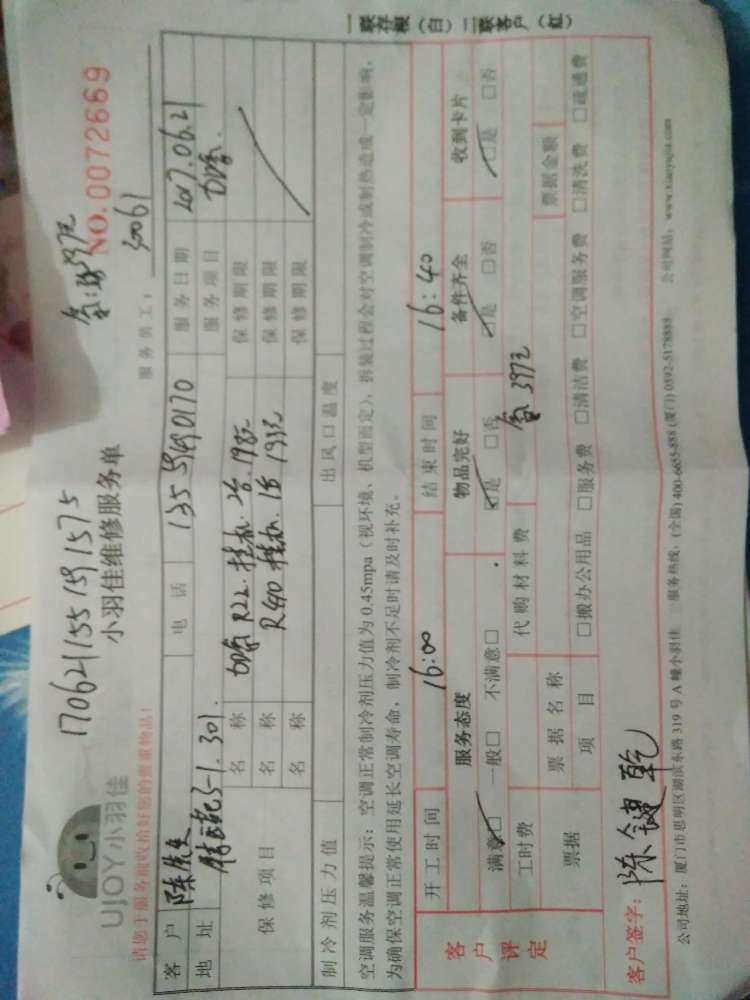 一联存根（白）二联客户（红）
170621155159 1575
NO.0072669
UJOY小羽佳
小羽佳维修服务单
397元
请您于服务前收拾好您的贵重物品！
服务员工：
客户
电话 135
服务日期 2017.06.21
地址 5-1.301.
服务项目 加氨
保修项目
名称 加氨 R22. 挂机
保修期限
名称 R410 挂机
保修期限
名称
保修期限
制冷剂压力值
出风口温度
空调服务温馨提示：空调正常制冷剂压力值为 0.45mpa（视环境、机型而定），拆装过程会对空调制冷或制热造成一定影响。
为确保空调正常使用延长空调寿命，制冷剂不足时请及时补充。
开工时间 16:00
结束时间 16:40
客户评定
服务态度 物品完好 备件齐全 收到卡片
满意□ 一般□ 不满意□ □是 □否 □是 □否 □是 □否
工时费 代购材料费 397元
票据 票据名称 票据金额
项目 □搬办公用品 □服务费 □清洁费 □空调服务费 □清洗费 □疏通费
客户签字：陈键乾
公司地址：厦门市思明区湖滨东路 319 号 A 幢小羽佳 服务热线：(全国)400-6655-888 (厦门)0592-5178888 公司网站：www.xiaoyujia.com